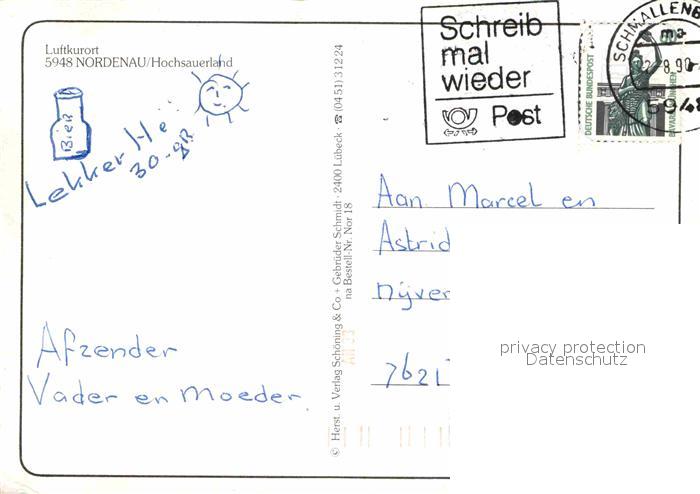 Luftkurort
5948 NORDENAU/Hochsauerland
Bier
Lekker He
30-gr
Afzender
Vader en moeder.
© Herst. u. Verlag Schöning & Co + Gebrüder Schmidt · 2400 Lübeck · ☎ (04 51) 3 12 24
na Bestell-Nr. Nor 18
Schreib
mal
wieder
Post
DEUTSCHE BUNDESPOST
SCHMALLENB
8.90
594
Aan Marcel en
Astrid
nijver
7621
privacy protection
Datenschutz